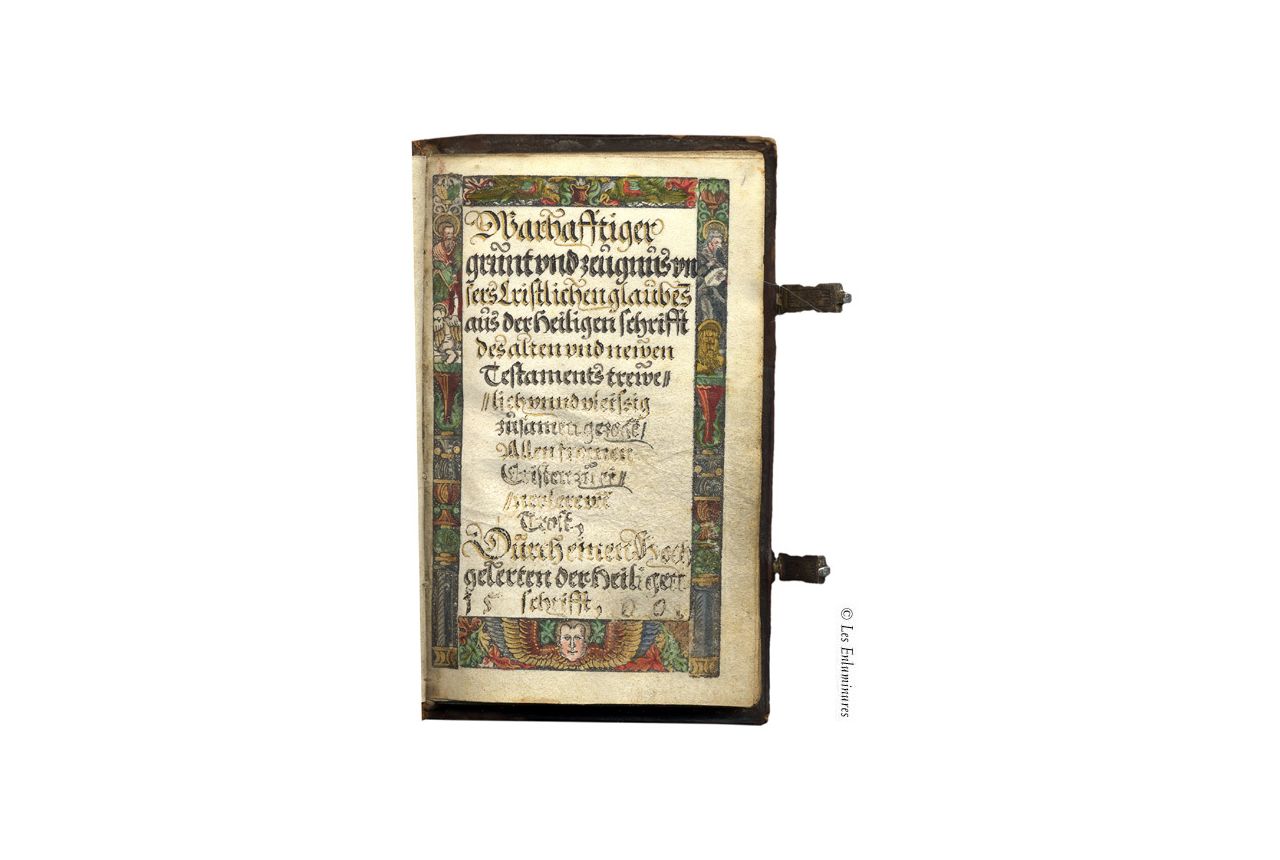 Warhafftiger
grŭnt vnd zeŭgnŭs vn
sers Cristlichen glaŭbēs
aŭs der Heiligen schrifft
des alten vnd newen
Testaments trewe//
//lich vnnd vleissig
zŭsamen
Allen fromen
Cristen zŭ ei//
Trost,
Dŭrch einen Hoch
gelerten der Heiligen
schrifft,
© Les Enluminures